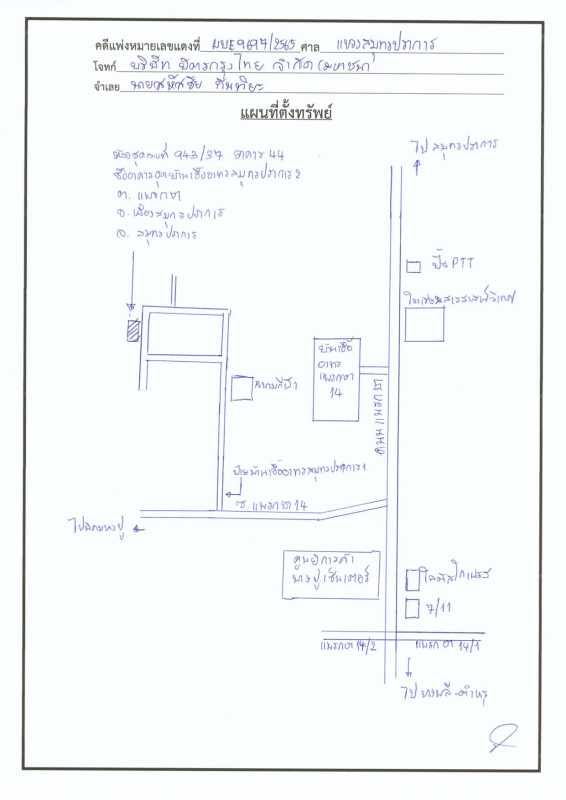 คดีแพ่งหมายเลขแดงที่ ผบE9697/2565 ศาล แขวงสมุทรปราการ
โจทก์ บริษัท บัตรกรุงไทย จำกัด (มหาชน)
จำเลย
แผนที่ตั้งทรัพย์
ห้องชุดเลขที่ 943/37 อาคาร 44
ชื่ออาคารชุดบ้านเอื้ออาทรสมุทรปราการ 2
ต. แพรกษา
อ. เมืองสมุทรปราการ
จ. สมุทรปราการ
ไป สมุทรปราการ
ปั๊ม PTT
โรงเรียนสารสาสน์วิเทศ
บ้านเอื้อ
อาทร
แพรกษา
14
สนามกีฬา
ถนนแพรกษา
ป้ายบ้านเอื้ออาทรสมุทรปราการ 1
ซ. แพรกษา 14
ไปนิคมบางปู
ศูนย์การค้า
บางปูเซ็นเตอร์
โลตัสเอ็กเพรส
7/11
แพรกษา 14/2
แพรกษา 14/1
ไป บางพลี-ตำหรุ